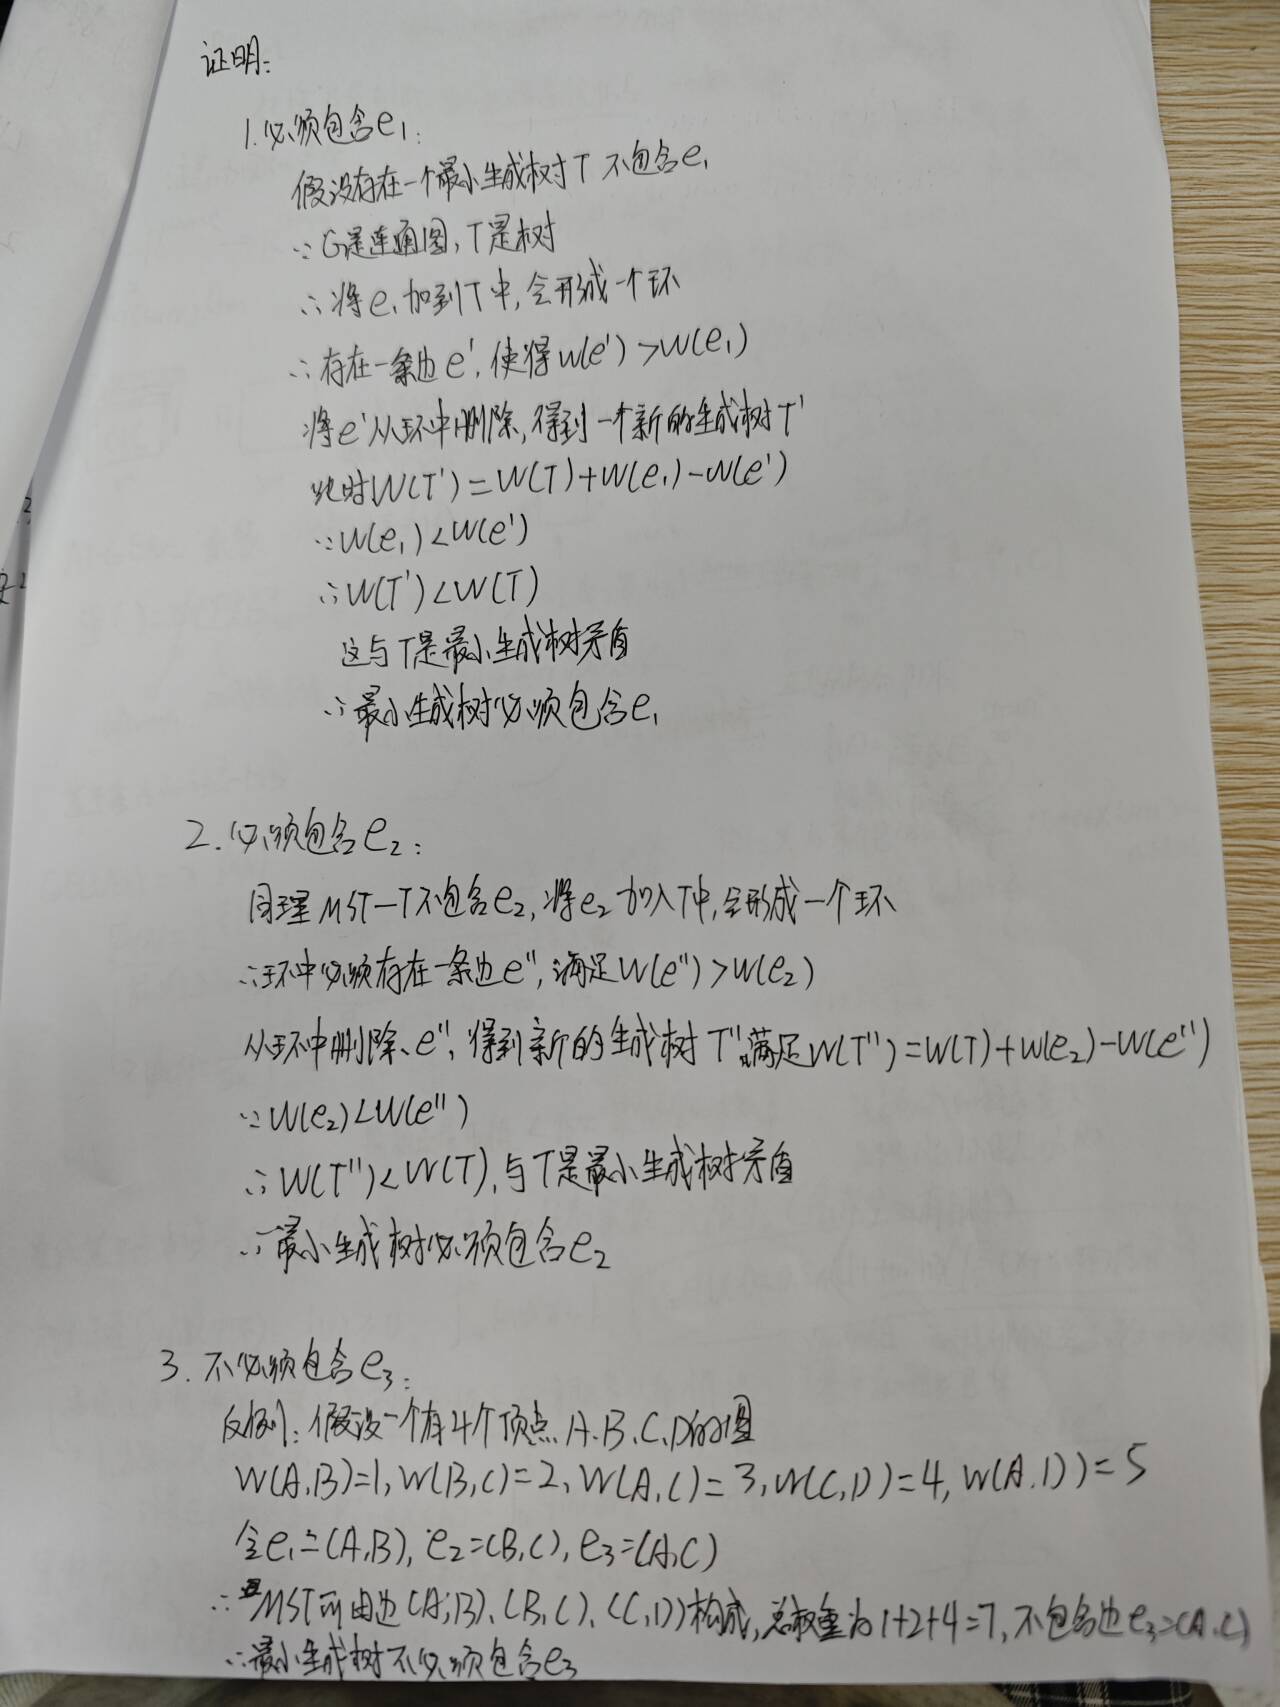 证明:
1.必须包含e₁:
假设存在一个最小生成树T 不包含e₁
∵G是连通图,T是树
∴将e₁加到T中,会形成一个环
∴存在一条边e',使得w(e')>w(e₁)
将e'从环中删除,得到一个新的生成树T'
此时W(T')=W(T)+W(e₁)-W(e')
∵W(e₁)<W(e')
∴W(T')<W(T)
这与T是最小生成树矛盾
∴最小生成树必须包含e₁
2.必须包含e₂:
同理MST—T不包含e₂,将e₂加入T中,会形成一个环
∴环中必须存在一条边e'',满足W(e'')>W(e₂)
从环中删除e'',得到新的生成树T'',满足W(T'')=W(T)+W(e₂)-W(e'')
∵W(e₂)<W(e'')
∴W(T'')<W(T),与T是最小生成树矛盾
∴最小生成树必须包含e₂
3.不必须包含e₃:
反例:假设一个有4个顶点A.B.C.D的图
W(A,B)=1,W(B,C)=2,W(A,C)=3,W(C,D)=4,W(A,D)=5
令e₁=(A,B),e₂=(B,C),e₃=(A,C)
∴MST可由边(A,B)、(B,C)、(C,D)构成,总权重为1+2+4=7,不包含边e₃=(A,C)
∴最小生成树不必须包含e₃